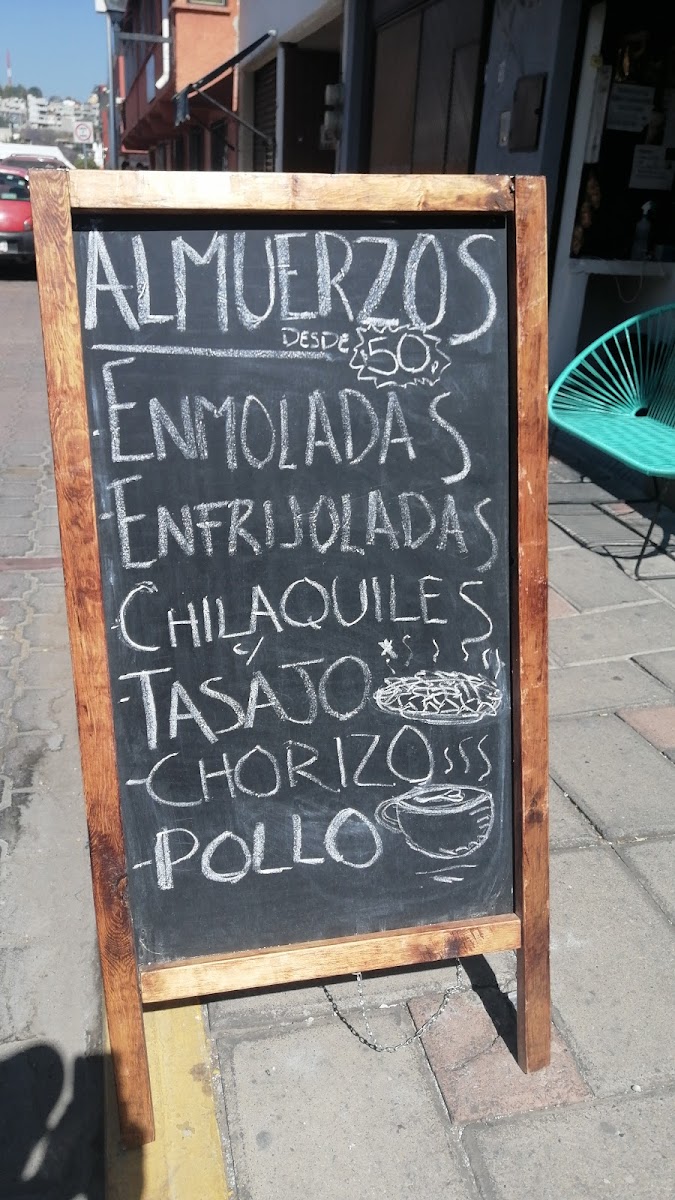 ALMUERZOS
DESDE 50.
-ENMOLADAS
-ENFRIJOLADAS
-CHILAQUILES
c/
-TASAJO
-CHORIZO
-POLLO